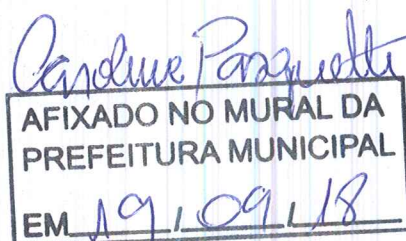 Caroline Pasquetti
AFIXADO NO MURAL DA
PREFEITURA MUNICIPAL
EM 19/09/18